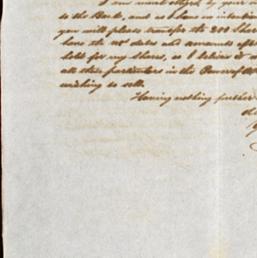 I am must oblig'd by your
to the Bank, and as I have no intention
you will please transfer the 200 Shar
have the no dates and amounts
sold for my shares, as I believe
all other particulars in the Power of
wishing to sell.
Having nothing further